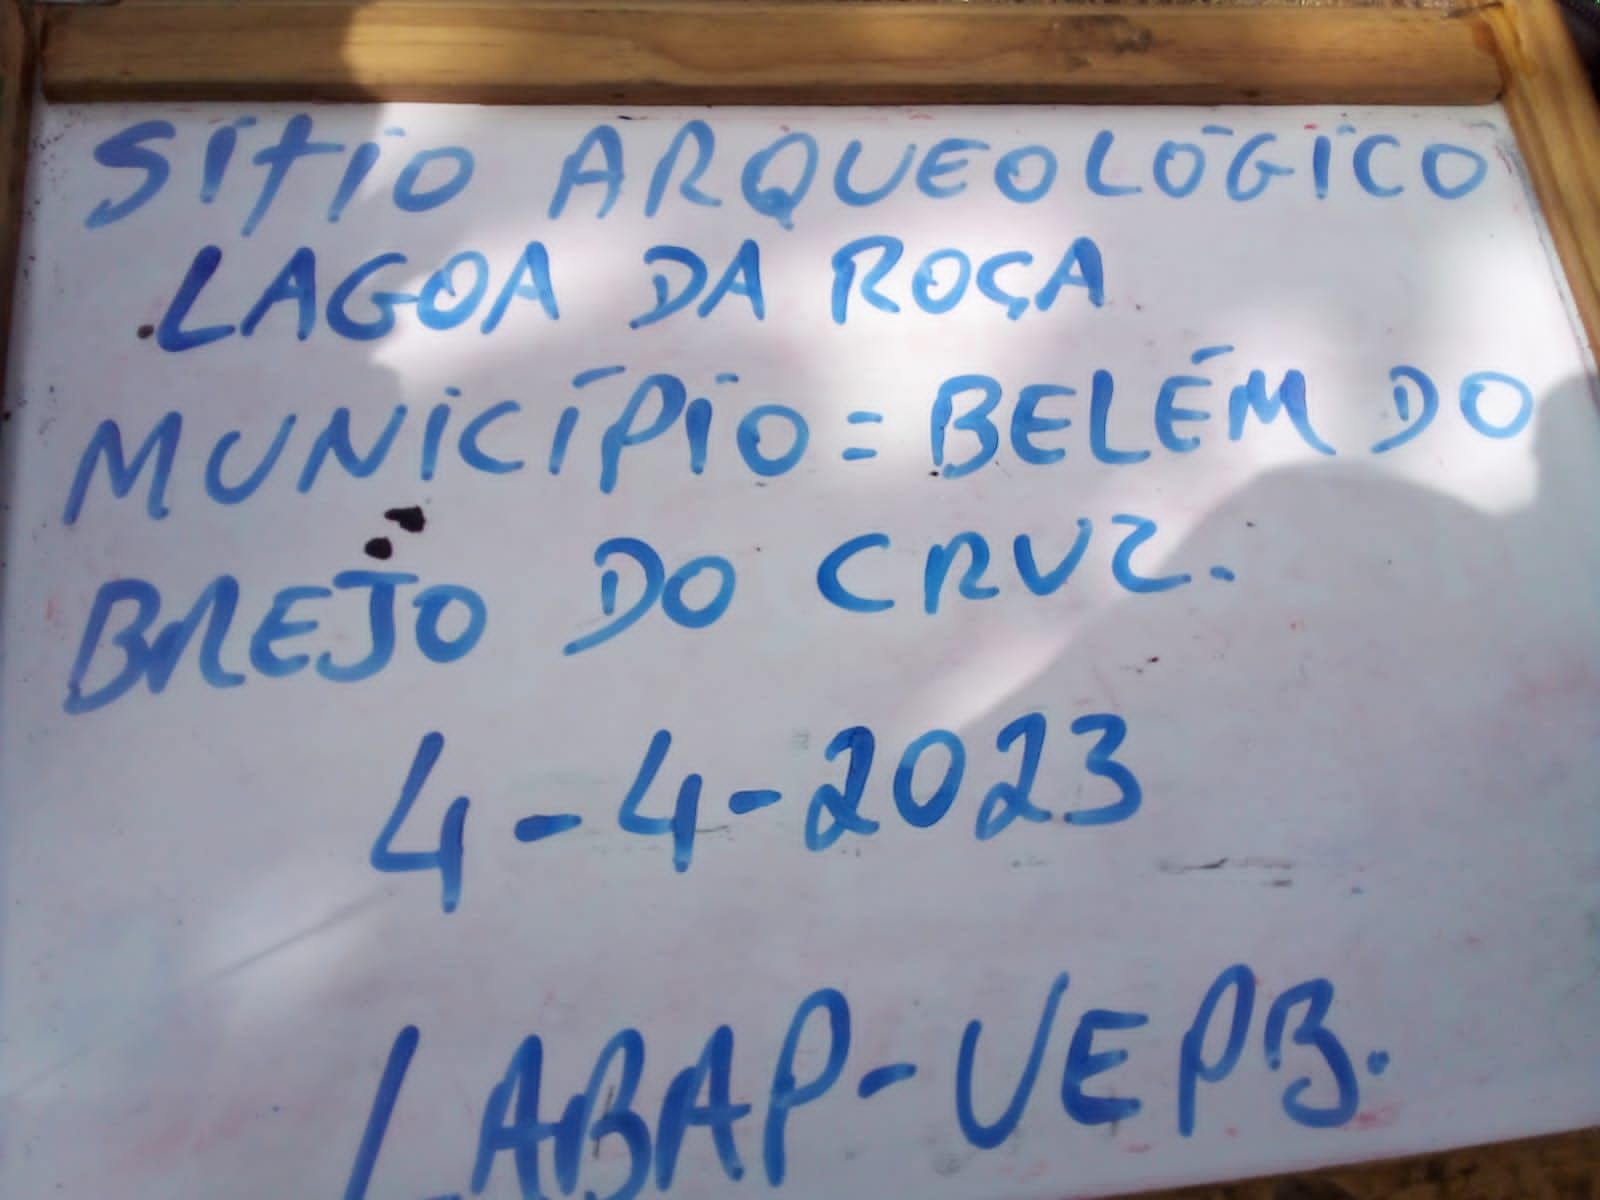 SÍTIO ARQUEOLÓGICO
LAGOA DA ROÇA
MUNICÍPIO = BELÉM DO
BREJO DO CRUZ.
4-4-2023
LABAP-UEPB.